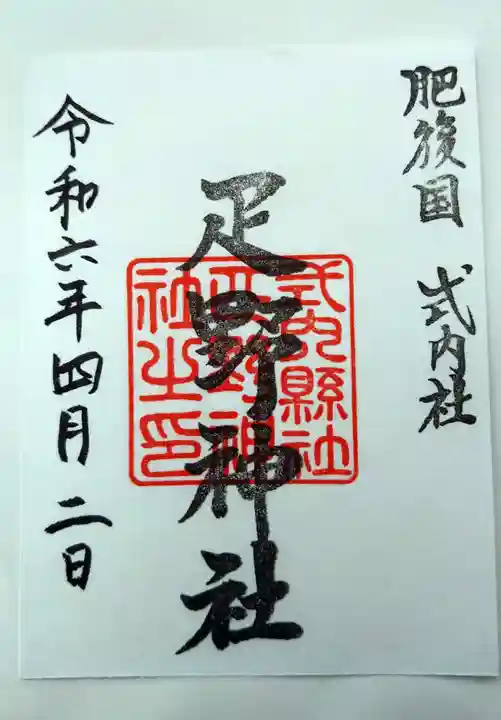 肥後国 式内社
疋野神社
式内縣社
疋野神
社之印
令和六年四月二日